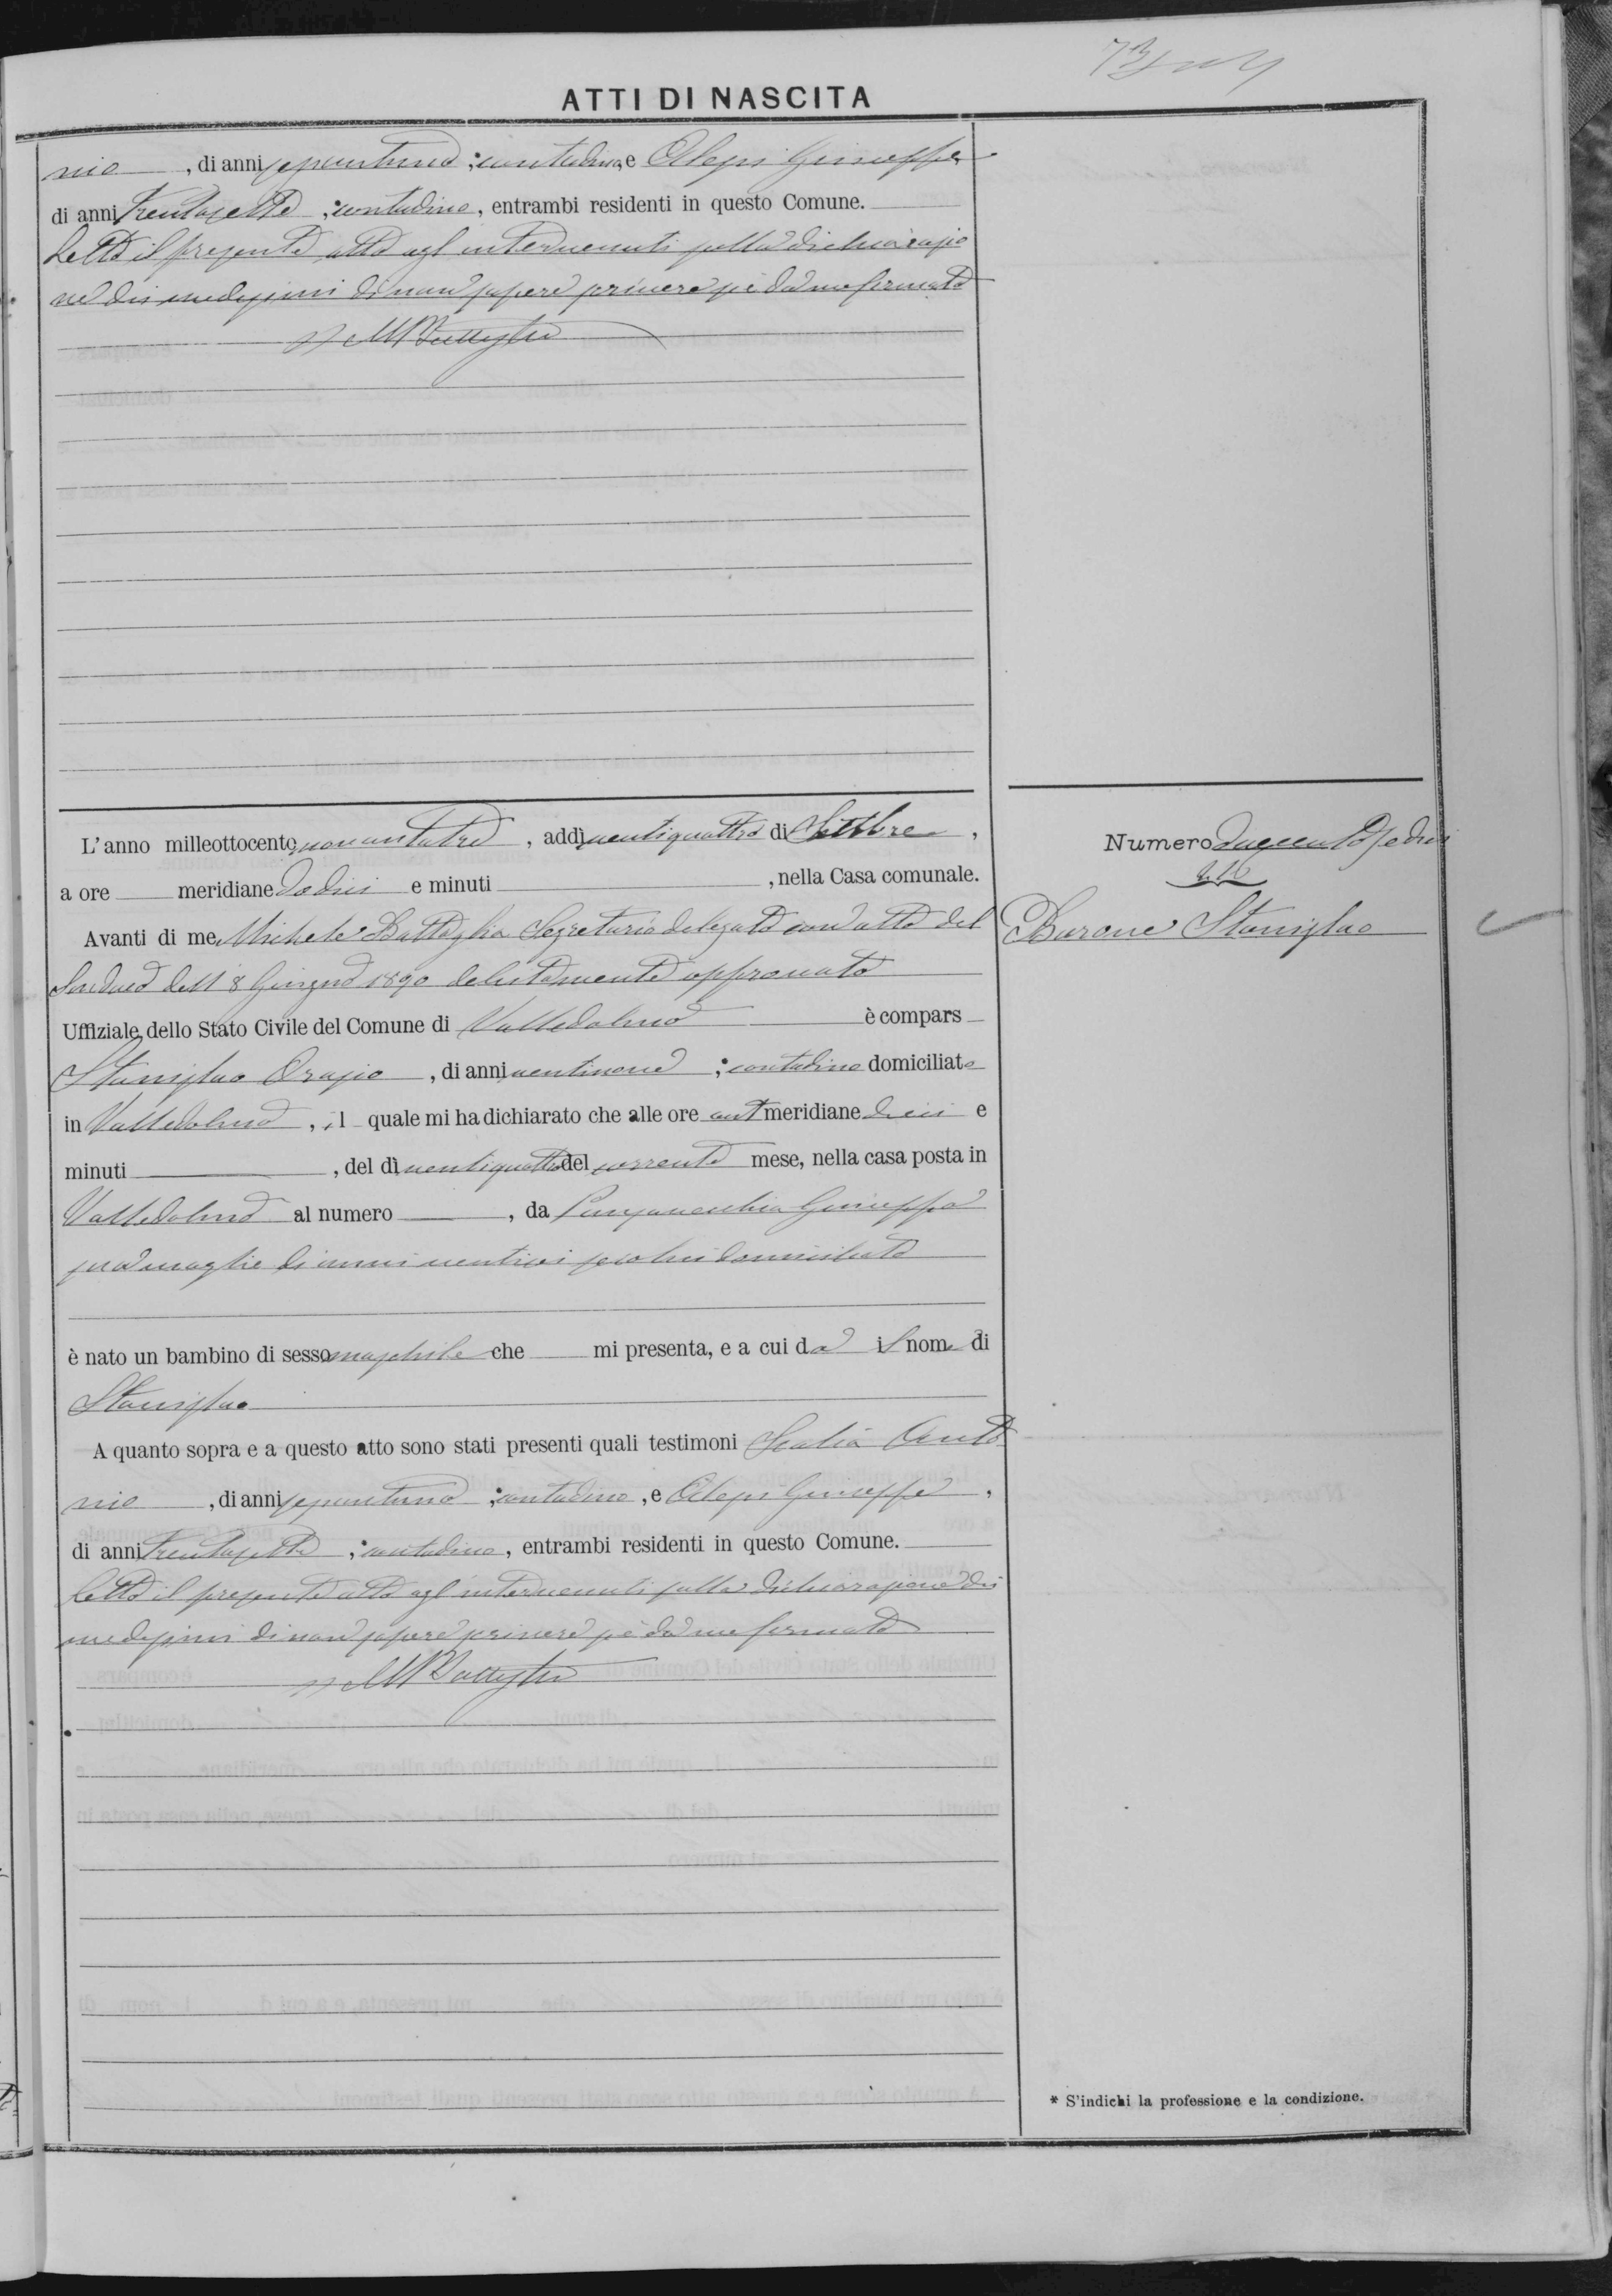 ATTI DI NASCITA
nio, di anni sessantuno; contadino, e Alepi Giuseppe
di anni trentasette; contadino, entrambi residenti in questo Comune.
Letto il presente atto agl'intervenuti sulla dichiarazio
ne dei medesimi di non sapere scrivere si è da me firmato
M Battaglia
L'anno milleottocento novantatre, addì ventiquattro di Settbre,
a ore meridiane dodici e minuti, nella Casa comunale.
Avanti di me Michele Battaglia Segretario delegato con atto del
Sindaco dell'8 Giugno 1890 debitamente approvato
Uffiziale dello Stato Civile del Comune di Valledolmo è compars
Stanislao Orazio, di anni ventinove; contadino domiciliato
in Valledolmo, il quale mi ha dichiarato che alle ore ant meridiane dieci e
minuti, del dì ventiquattro del corrente mese, nella casa posta in
Valledolmo al numero, da Panzavecchia Giuseppa
sua moglie di anni ventisei seco lui domiciliata
è nato un bambino di sesso maschile che mi presenta, e a cui dà il nome di
Stanislao
A quanto sopra e a questo atto sono stati presenti quali testimoni Scalia Anto
nio, di anni sessantuno; contadino, e Alepi Giuseppe,
di anni trentasette; contadino, entrambi residenti in questo Comune.
Letto il presente atto agl'intervenuti sulla dichiarazione dei
medesimi di non sapere scrivere si è da me firmato
M Battaglia
Numero duecentosedici
216
Barone Stanislao
* S'indichi la professione e la condizione.